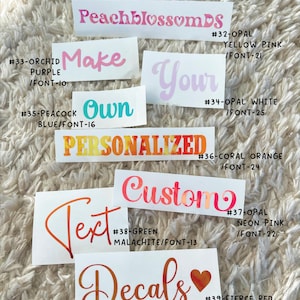 PeachblossomDS
#32-OPAL
YELLOW PINK
/FONT-21
#33-ORCHID
PURPLE
/FONT-10
Make
Your
#34-OPAL WHITE
/FONT-25
#35-PEACOCK
BLUE/FONT-16
Own
PERSONALIZED
#36-CORAL ORANGE
/FONT-24
Custom
#37-OPAL
NEON PINK
/FONT-22
Text
#38-GREEN
MALACHITE/FONT-13
Decals
#39-FIERCE RED